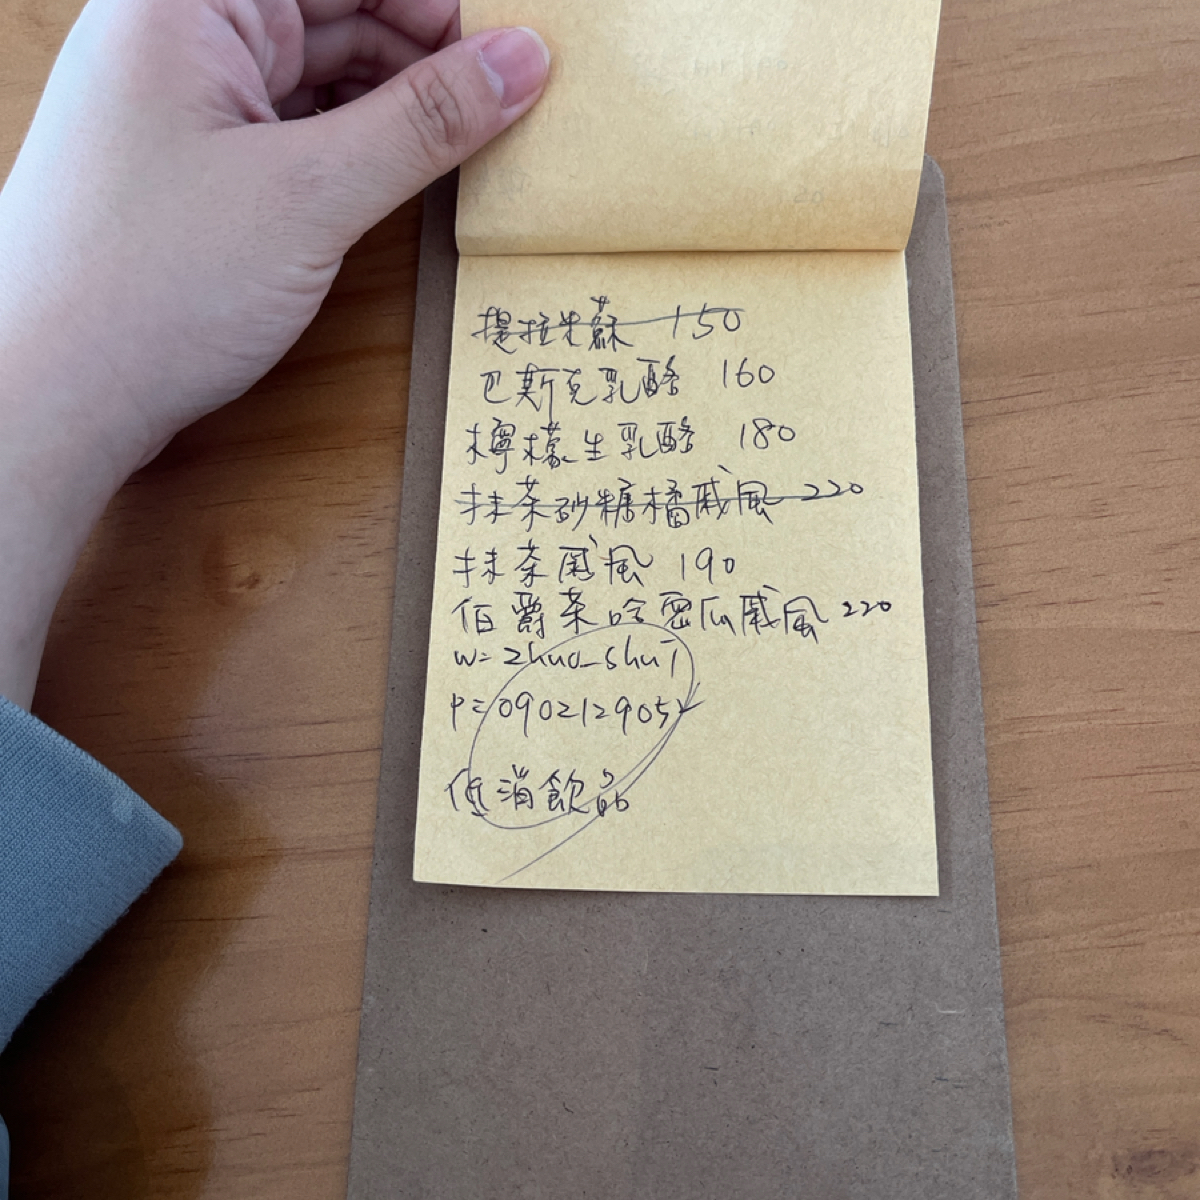 提拉米蘇 150
巴斯克乳酪 160
檸檬生乳酪 180
抹茶砂糖橘戚風 220
抹茶戚風 190
伯爵茶哈密瓜戚風 220
w= zhuo_shui
p=0902129052
低消飲品